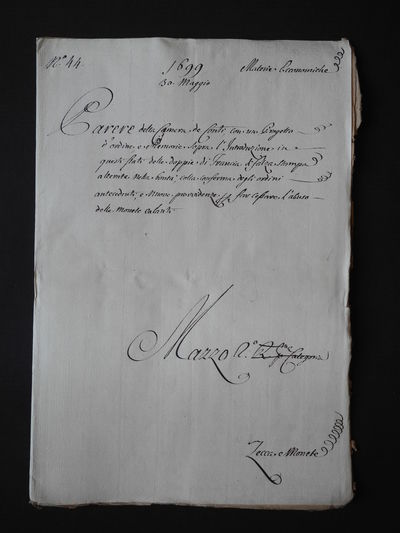 N.º 44.
1699
30. Maggio
Materie Economiche
Parere della Camera de Conti con un Progetto
d'ordine, e Memorie Sopra l'Introduzione in
questi Stati delle doppie di Francia di falsa Stampa
alterate nella bontà colla conferma degli ordini
antecedenti, e nuove providenze per far cessare l'abuso
delle Monete calanti
Mazzo N.º
Zecca, e Monete